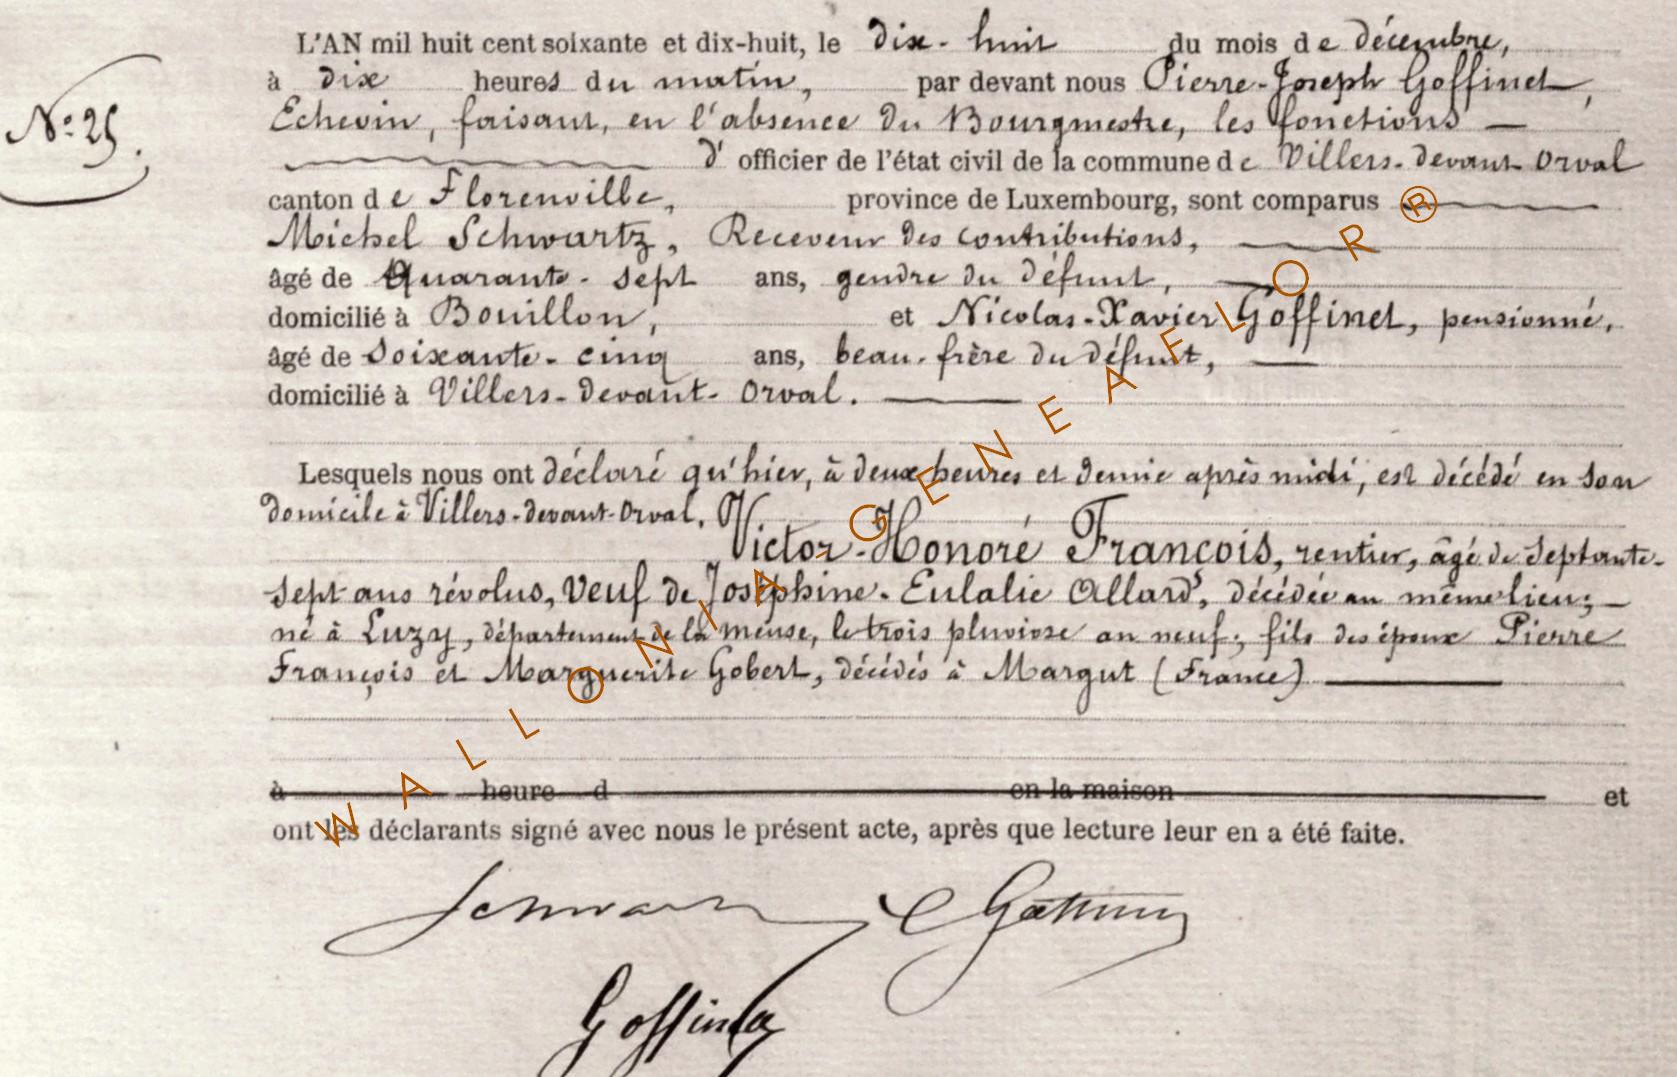 L'AN mil huit cent soixante et dix-huit, le dix-huit du mois de décembre,
à dix heures du matin, par devant nous Pierre-Joseph Goffinet,
Echevin, faisant, en l'absence du Bourgmestre, les fonctions —
N° 25.
d'officier de l'état civil de la commune de Villers-devant-Orval
canton de Florenville, province de Luxembourg, sont comparus
Michel Schwartz, Receveur des contributions,
âgé de Quarante-sept ans, gendre du défunt,
domicilié à Bouillon, et Nicolas-Xavier Goffinet, pensionné,
âgé de Soixante-cinq ans, beau-frère du défunt,
domicilié à Villers-devant-Orval.
Lesquels nous ont déclaré qu'hier, à deux heures et demie après midi, est décédé en son
domicile à Villers-devant-Orval,
Victor-Honoré François, rentier, âgé de septante-
sept ans révolus, veuf de Joséphine-Eulalie Allard, décédée au même lieu; —
né à Luzy, département de la meuse, le trois pluviose an neuf; fils des époux Pierre
François et Marguerite Gobert, décédés à Margut (France)
à heure d en la maison et
ont les déclarants signé avec nous le présent acte, après que lecture leur en a été faite.
Schwartz Goffinet
Goffinet
WALLONIA-GENEAFLOR®